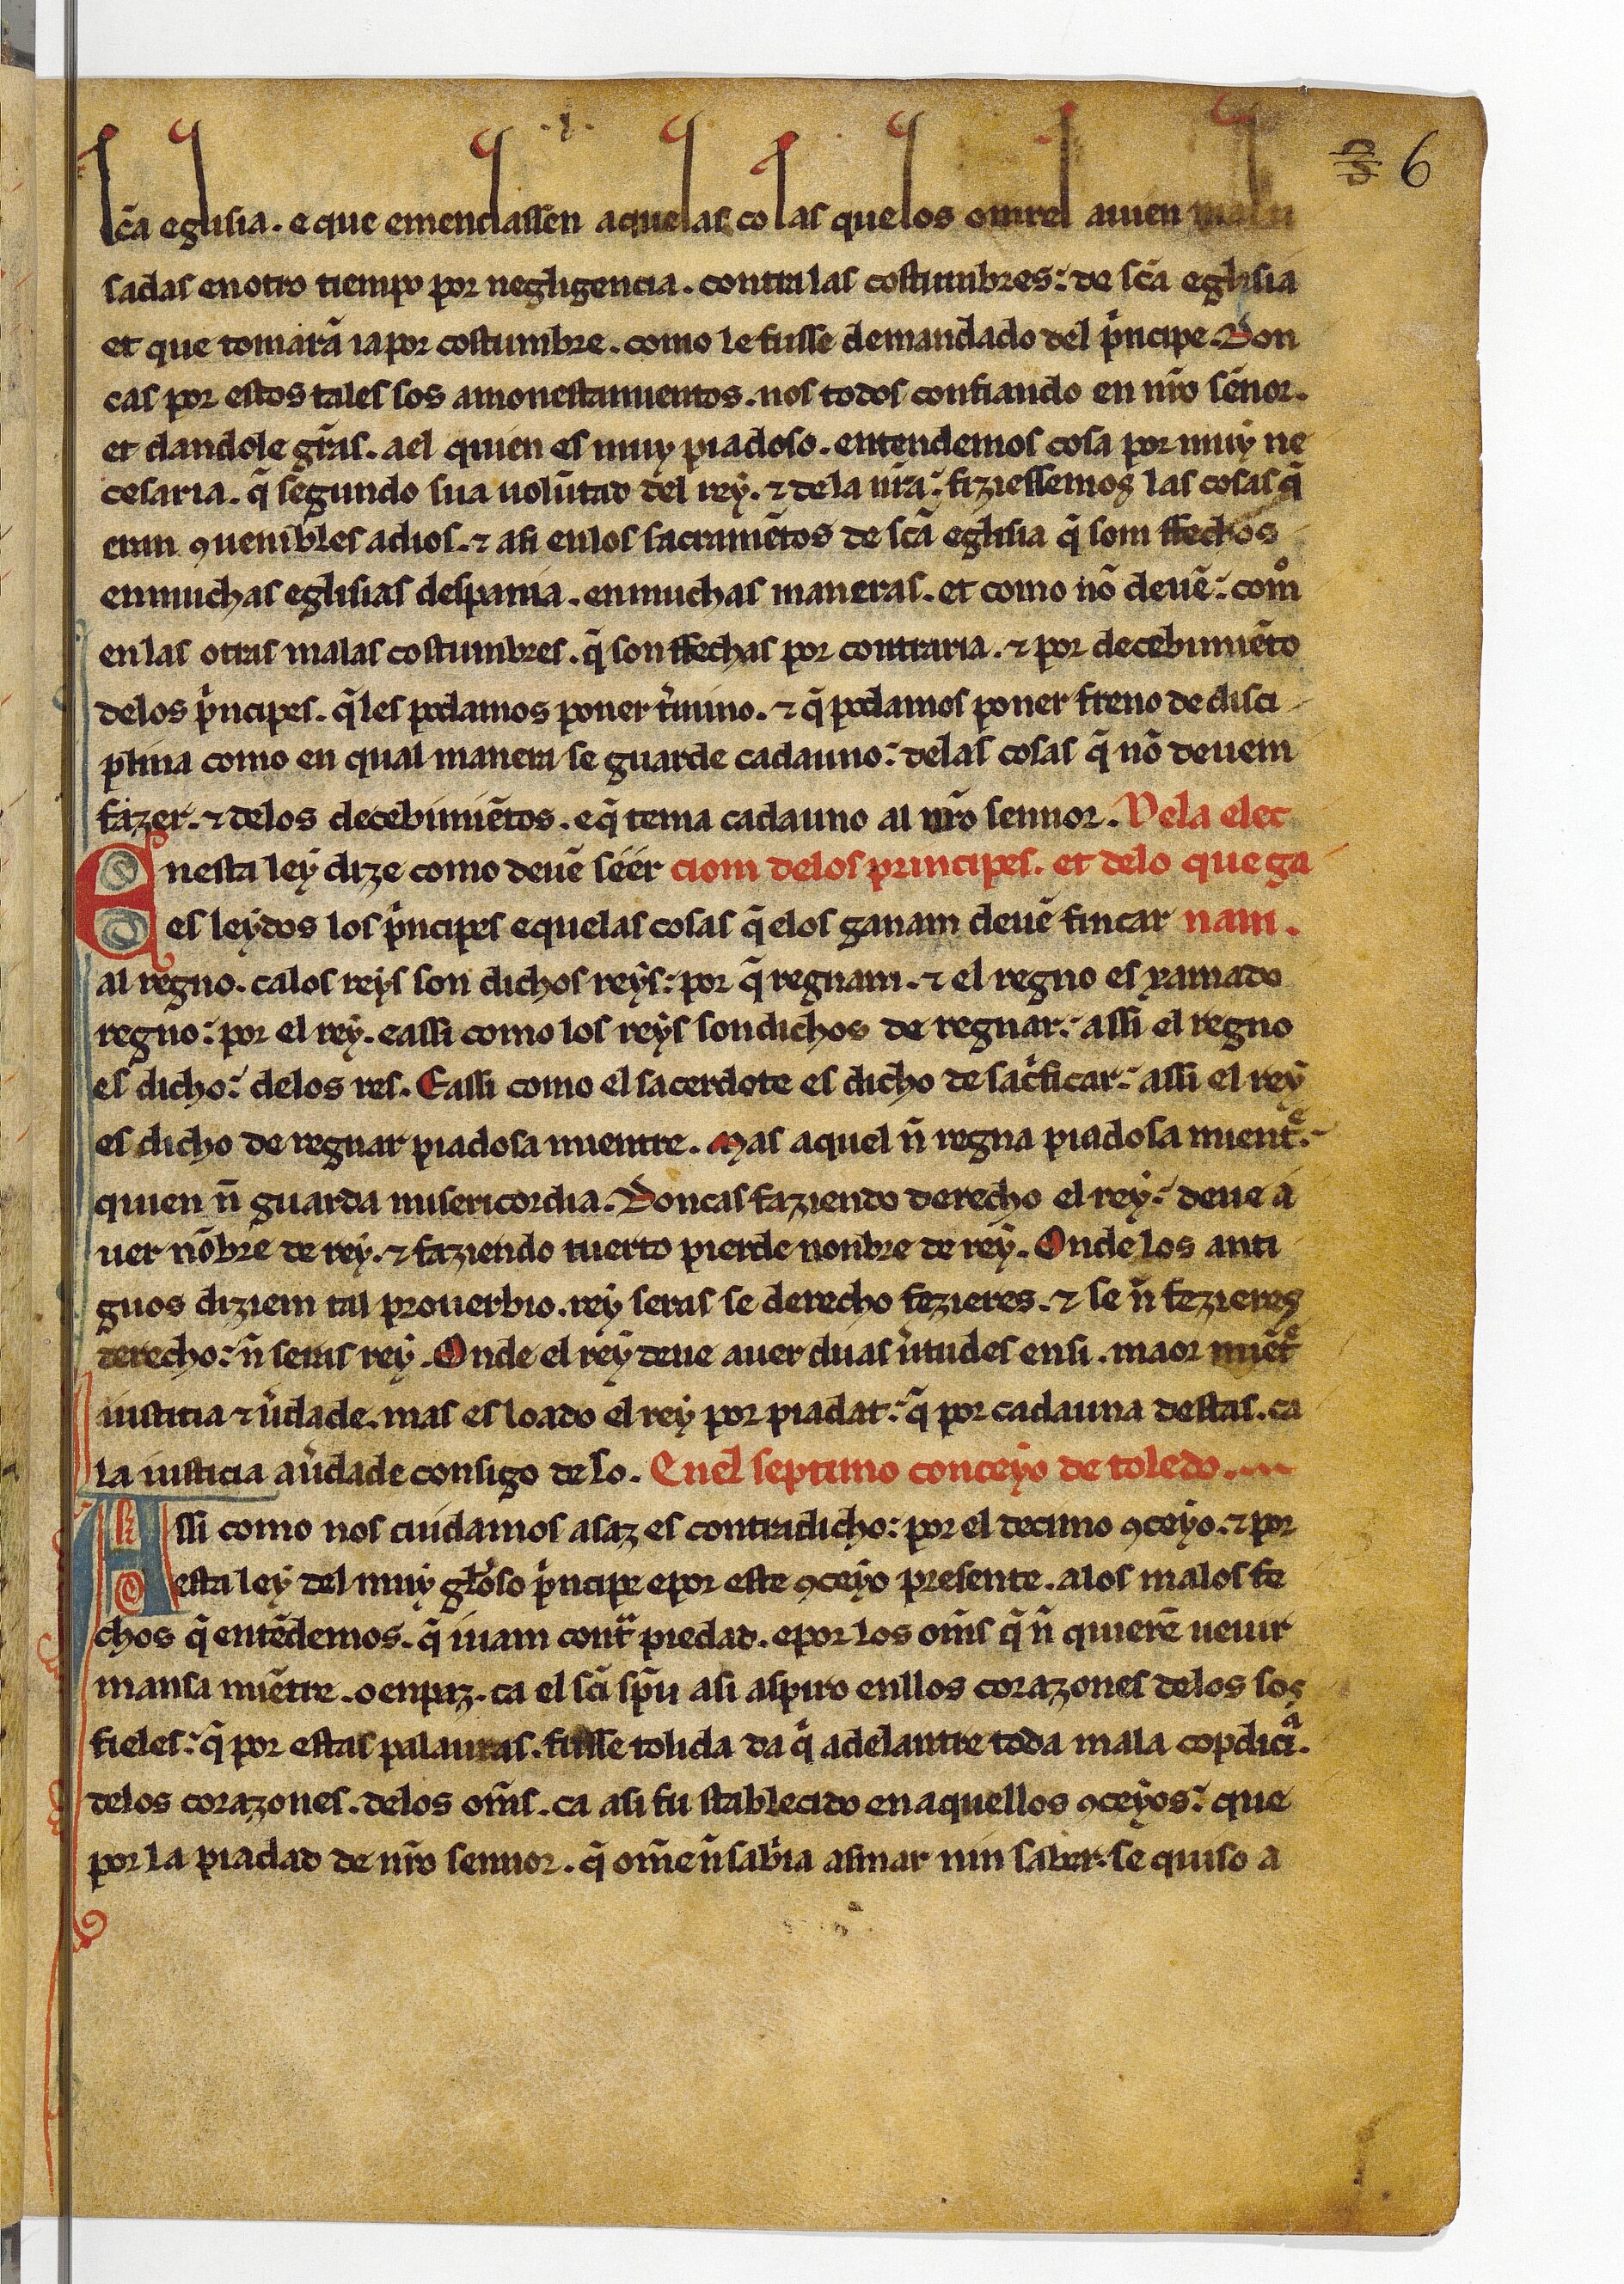 6
sc̃a eglisia. e que emendassen aquelas cosas que los omres auien mal u
sadas en otro tiempo por negligencia. contra las costumbres: de sc̃a eglisia
et que tomarã ia por costumbre. como le fusse demandado del p̃ncipe. Don
cas por estos tales sos amonestamientos. nos todos confiando en nr̃o sẽnor.
et dandole gr̃as. a el quien es muy piadoso. entendemos cosa por muy ne
cesaria. q̃ segundo sua uolũtad del rey. ⁊ de la nr̃a: fiziessemos las cosas q̃
eran ꝯuenibles a dios. ⁊ asi en los sacramẽtos de sc̃a eglisia q̃ som ffechos
en muchas eglisias despania. en muchas maneras. et como nõ deuẽ: como
en las otras malas costumbres. q̃ son ffechas por contraria. ⁊ por decebimiẽto
de los p̃ncipes. q̃ les podamos poner t̃mino. ⁊ q̃ podamos poner freno de disci
plina como en qual manera se guarde cada uno: de las cosas q̃ nõ deuem
fazer. ⁊ de los decebimiẽtos. e q̃ tema cada uno al nr̃o sennor. De la elec
En esta ley dize como deuẽ séér ciom de los principes. et de lo que ga
es leydos los p̃ncipes e que las cosas q̃ elos ganam deuẽ fincar nam.
al regno. ca los reys son dichos reys: por q̃ regnam. ⁊ el regno es xamado
regno: por el rey. e assi como los reys son dichos de regnar: assi el regno
es dicho: de los res. E assi como el sacerdote es dicho de sac̃ficar: assi el rey
es dicho de regnar piadosa mientre. Mas aquel ñ regna piadosa mientᵉ.
quien ñ guarda misericordia. Doncas faziendo derecho el rey: deue a
uer nõbre de rey. ⁊ faziendo tuerto pierde nonbre de rey. Onde los anti
guos diziem tal prouerbio. rey seras se derecho fezieres. ⁊ se ñ fezieres
derecho: ñ seras rey. Onde el rey deue auer duas ũtudes en si. maor miẽtᵉ
iustitia ⁊ ũdade. mas es loado el rey por piadat: q̃ por cada una destas. ca
la iusticia a ũdade consigo de so. En el septimo conceyo de toledo.
Assi como nos cuidamos asaz es contradicho: por el decimo ꝯceyo. ⁊ por
esta ley del muy gl̃oso p̃ncipe e por este ꝯceyo presente. a los malos fe
chos q̃ entẽdemos. q̃ iuam contᵃ piedad. e por los om̃s q̃ ñ quierẽ ueuir
mansa miẽtre. o en paz. ca el sc̃i sp̃u asi aspiro en llos corazones de los sos
fieles: q̃ por estas palauras. fusse tolida da q̃ adelantre toda mala copdiciᵃ.
de los corazones. de los om̃s. ca asi fu stablecido en aquellos ꝯceyos: que
por la piadad de nr̃o sennor. q̃ om̃e ñ sab̃ia asmar nin saber. se quiso a